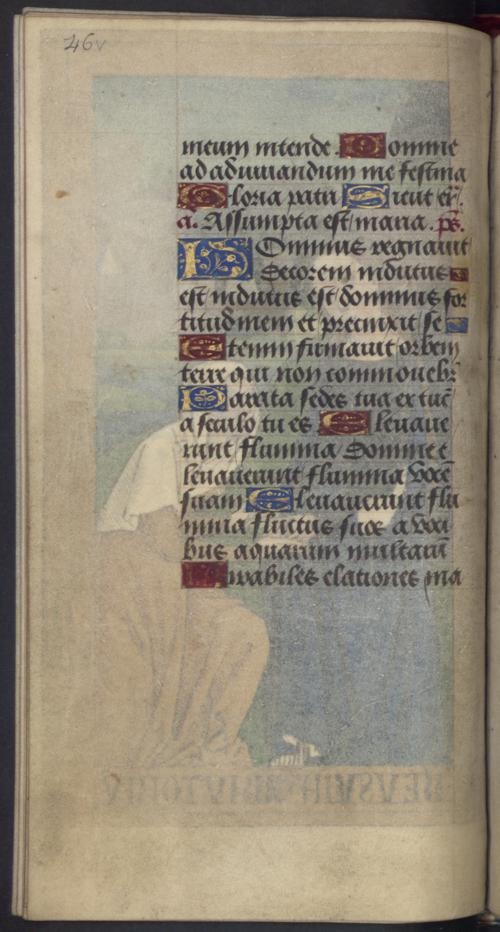 46v
meum intende. Domine
ad adiuuandum me festina
Gloria patri Sicut er̄.
a. Assumpta est maria. ps.
DOminus regnauit
decorem indutus
est indutus est dominus for
titudinem et precinxit se
Etenim firmauit orbem
terre qui non commouebr̄
Parata sedes tua ex tūc
a seculo tu es Eleuaue
runt flumina domine e
leuauerunt flumina vocē
suam Eleuauerunt flu
mina fluctus suos a voci
bus aquarum multarū
Mirabiles elationes ma
DEVS VIN ADIVTORIV